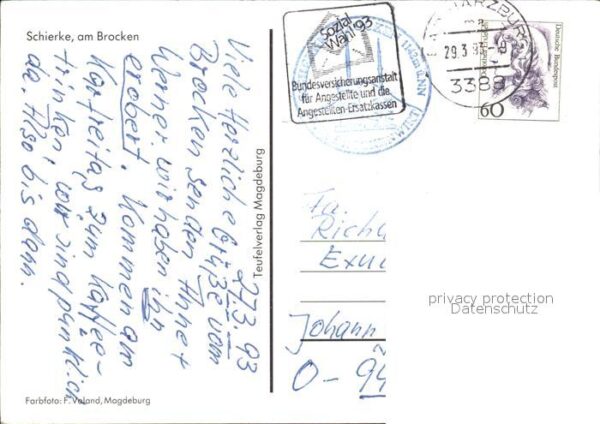 Schierke, am Brocken
27.3.93
Viele Herzliche Grüße vom
Brocken senden Annet +
Werner. wir haben ihn
erobert. Kommen am
Karfreitag zum Kaffee-
trinken, wir sind pünktlich
da. Also bis dann.
Farbfoto: F. Valand, Magdeburg
Teufelverlag Magdeburg
Sozial
Wahl '93
Bundesversicherungsanstalt
für Angestellte und die
Angestellten-Ersatzkassen
HARZBURG
29.3.93
3388
Deutsche Bundespost
60
Fa.
Rich
Exn
Johann
O - 94
privacy protection
Datenschutz